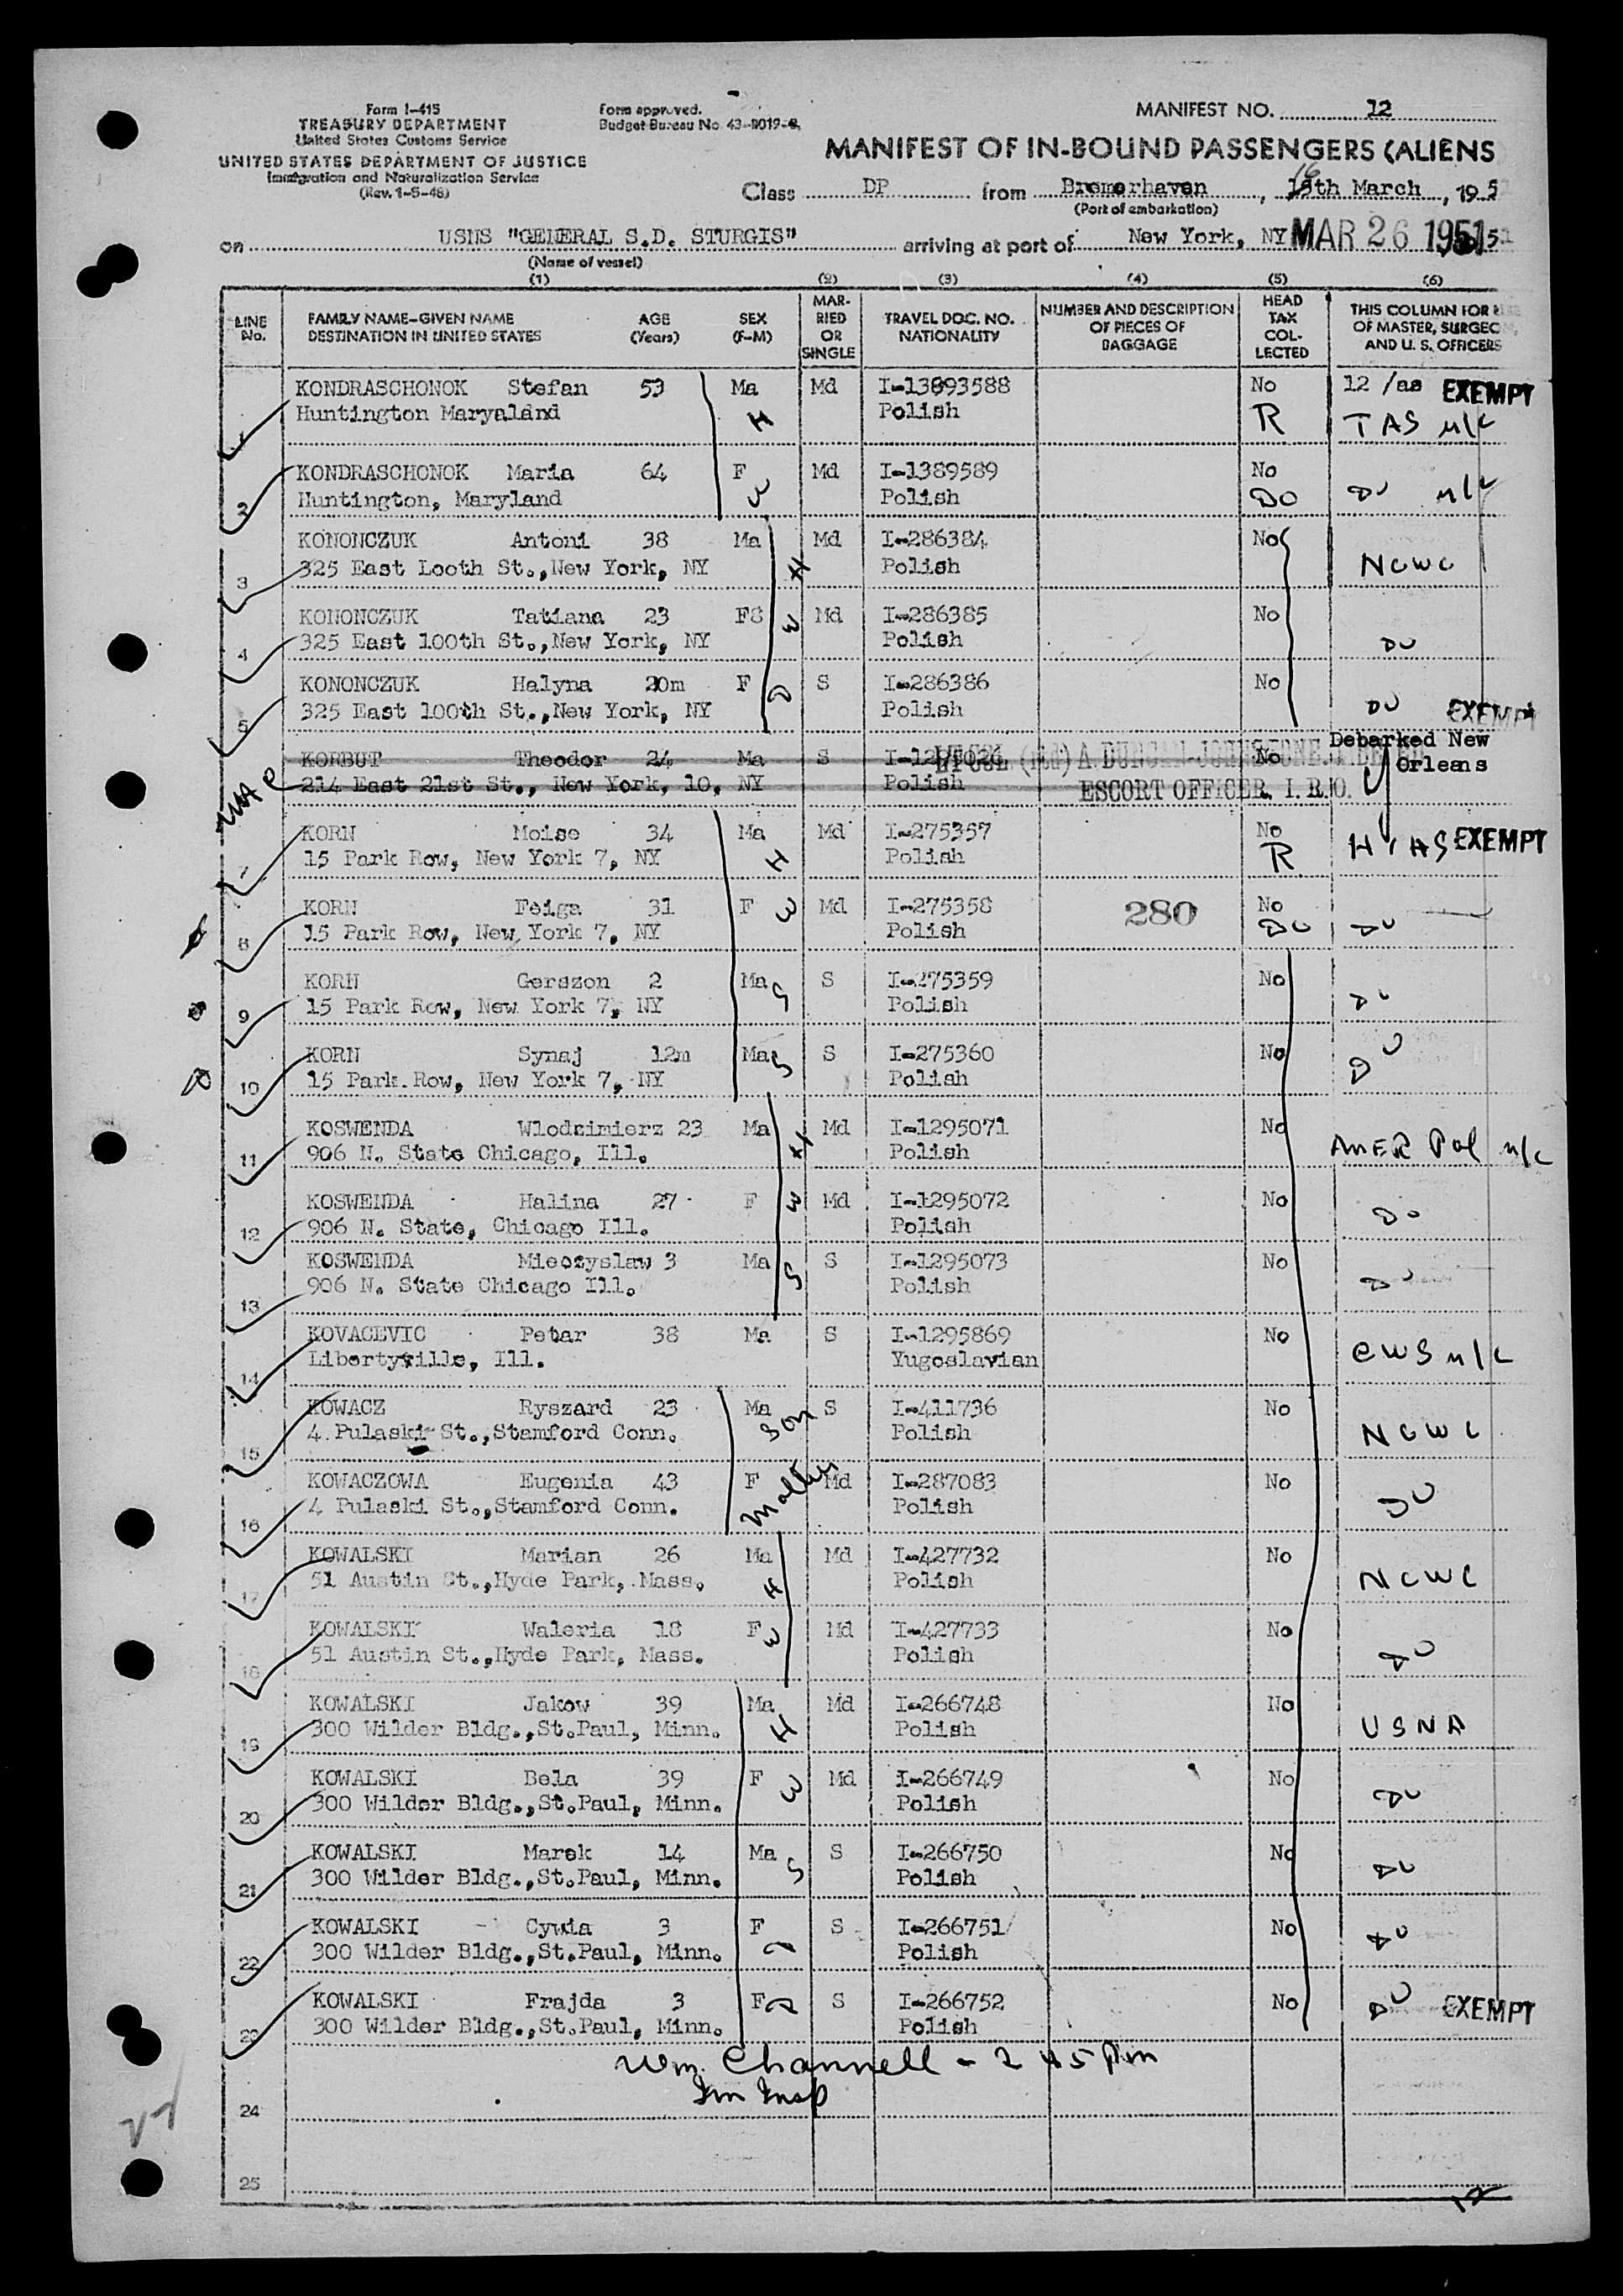 Form I-415
TREASURY DEPARTMENT
United States Customs Service
UNITED STATES DEPARTMENT OF JUSTICE
Immigration and Naturalization Service
(Rev. 1-5-48)
Form approved.
Budget Bureau No. 43-R019-2.
MANIFEST NO. 12
MANIFEST OF IN-BOUND PASSENGERS (ALIENS
Class DP from Bremerhaven, 16 15th March, 195
(Port of embarkation)
on USNS "GENERAL S.D. STURGIS" arriving at port of New York, NY MAR 26 1951 51
(Name of vessel)
(1) (2) (3) (4) (5) (6)
LINE No. FAMILY NAME-GIVEN NAME DESTINATION IN UNITED STATES AGE (Years) SEX (F-M) MARRIED OR SINGLE TRAVEL DOC. NO. NATIONALITY NUMBER AND DESCRIPTION OF PIECES OF BAGGAGE HEAD TAX COLLECTED THIS COLUMN FOR USE OF MASTER, SURGEON, AND U. S. OFFICERS
1 KONDRASCHONOK Stefan 53 Ma Md I-13893588 No 12 /as EXEMPT
Huntington Maryaland H Polish R TAS n/c
2 KONDRASCHONOK Maria 64 F Md I-1389589 No
Huntington, Maryland W Polish DO DO n/c
3 KONONCZUK Antoni 38 Ma Md I-286384 No
325 East Looth St.,New York, NY H Polish NCWC
4 KONONCZUK Tatiana 23 F8 Md I-286385 No
325 East 100th St.,New York, NY W Polish DO
5 KONONCZUK Halyna 20m F S I-286386 No
325 East 100th St.,New York, NY D Polish DO EXEMPT
KORBUT Theodor 24 Ma S No Debarked New Orleans
214 East 21st St., New York, 10, NY Polish
LT COL (Rtd) A DUNCAN-JOHNSTONE
ESCORT OFFICER, I.R.O.
7 KORN Moise 34 Ma Md I-275357 No
15 Park Row, New York 7, NY H Polish R HIAS EXEMPT
8 KORN Feiga 31 F Md I-275358 280 No
15 Park Row, New York 7, NY W Polish DO DO
9 KORN Gerszon 2 Ma S I-275359 No
15 Park Row, New York 7, NY S Polish DO
10 KORN Synaj 12m Ma S I-275360 No
15 Park Row, New York 7, NY S Polish DO
11 KOSWENDA Wlodzimierz 23 Ma Md I-1295071 No
906 N. State Chicago, Ill. H Polish AMER Pol n/c
12 KOSWENDA Halina 27 F Md I-1295072 No
906 N. State, Chicago Ill. W Polish DO
13 KOSWENDA Mieczyslaw 3 Ma S I-1295073 No
906 N. State Chicago Ill. S Polish DO
14 KOVACEVIC Petar 38 Ma S I-1295869 No
Libertyville, Ill. Yugoslavian CWS n/c
15 KOWACZ Ryszard 23 Ma S I-411736 No
4 Pulaski St.,Stamford Conn. Son Polish NCWC
16 KOWACZOWA Eugenia 43 F Md I-287083 No
4 Pulaski St.,Stamford Conn. Mother Polish DO
17 KOWALSKI Marian 26 Ma Md I-427732 No
51 Austin St.,Hyde Park, Mass. H Polish NCWC
18 KOWALSKI Waleria 18 F Md I-427733 No
51 Austin St.,Hyde Park, Mass. W Polish DO
19 KOWALSKI Jakow 39 Ma Md I-266748 No
300 Wilder Bldg.,St.Paul, Minn. H Polish USNA
20 KOWALSKI Bela 39 F Md I-266749 No
300 Wilder Bldg.,St.Paul, Minn. W Polish DO
21 KOWALSKI Marek 14 Ma S I-266750 No
300 Wilder Bldg.,St.Paul, Minn. S Polish DO
22 KOWALSKI Cywia 3 F S I-266751 No
300 Wilder Bldg.,St.Paul, Minn. D Polish DO
23 KOWALSKI Frajda 3 F S I-266752 No
300 Wilder Bldg.,St.Paul, Minn. D Polish DO EXEMPT
Wm. Channell - 2 45 Pm
Im Insp
24
25
12